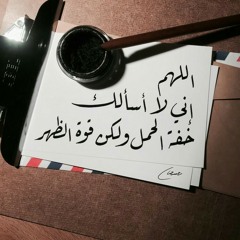 اللهم
إني لا أسألك
خفة الحمل ولكن قوة الظهر